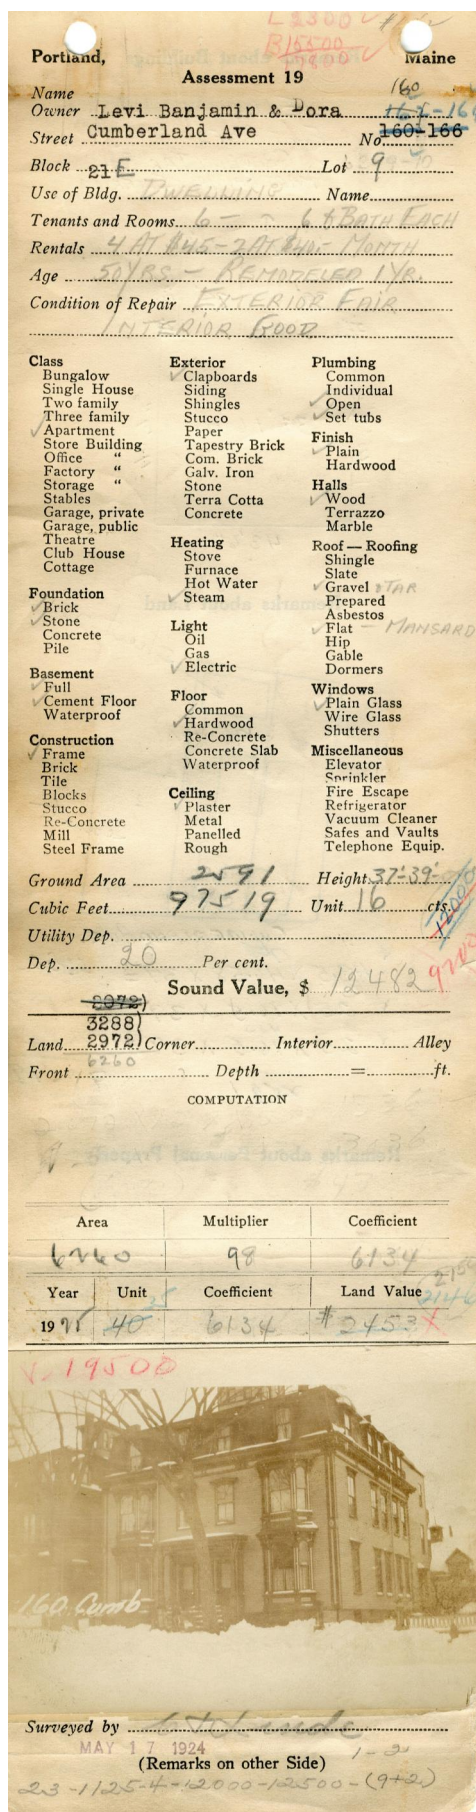 L 2500
B 15500
Portland, Maine
Assessment 19
Name 160
Owner Levi Banjamin & Dora
Street Cumberland Ave No. 160-166
Block 21 E Lot 9
Use of Bldg. DWELLING Name
Tenants and Rooms 6 — - 6 & BATH EACH
Rentals 4 AT $45 - 2 AT $40 - MONTH
Age 50 YRS. - REMODELED 1 YR.
Condition of Repair EXTERIOR FAIR
INTERIOR GOOD
Class
Bungalow
Single House
Two family
Three family
✓ Apartment
Store Building
Office "
Factory "
Storage "
Stables
Garage, private
Garage, public
Theatre
Club House
Cottage
Foundation
✓ Brick
✓ Stone
Concrete
Pile
Basement
✓ Full
✓ Cement Floor
Waterproof
Construction
✓ Frame
Brick
Tile
Blocks
Stucco
Re-Concrete
Mill
Steel Frame
Exterior
✓ Clapboards
Siding
Shingles
Stucco
Paper
Tapestry Brick
Com. Brick
Galv. Iron
Stone
Terra Cotta
Concrete
Heating
Stove
Furnace
Hot Water
✓ Steam
Light
Oil
Gas
✓ Electric
Floor
Common
✓ Hardwood
Re-Concrete
Concrete Slab
Waterproof
Ceiling
✓ Plaster
Metal
Panelled
Rough
Plumbing
Common
✓ Individual
✓ Open
✓ Set tubs
Finish
✓ Plain
Hardwood
Halls
✓ Wood
Terrazzo
Marble
Roof — Roofing
Shingle
Slate
✓ Gravel & TAR
Prepared
Asbestos
✓ Flat - MANSARD
Hip
Gable
Dormers
Windows
✓ Plain Glass
Wire Glass
Shutters
Miscellaneous
Elevator
Sprinkler
Fire Escape
Refrigerator
Vacuum Cleaner
Safes and Vaults
Telephone Equip.
Ground Area 2591 Height 37'-39'
Cubic Feet 97519 Unit 16 cts.
12000
Utility Dep.
Dep. 20 Per cent.
9200
Sound Value, $ 12482
2972)
3288)
Land 2972) Corner Interior Alley
6260
Front Depth = ft.
COMPUTATION
Area Multiplier Coefficient
6260 98 6134
2150
Year Unit Coefficient Land Value
35 2146
1925 40 6134 $ 2453
V-19500
160 Cumb
Surveyed by
MAY 17 1924
1-2
(Remarks on other Side)
23-1125-4-12000-12500-(9+2)